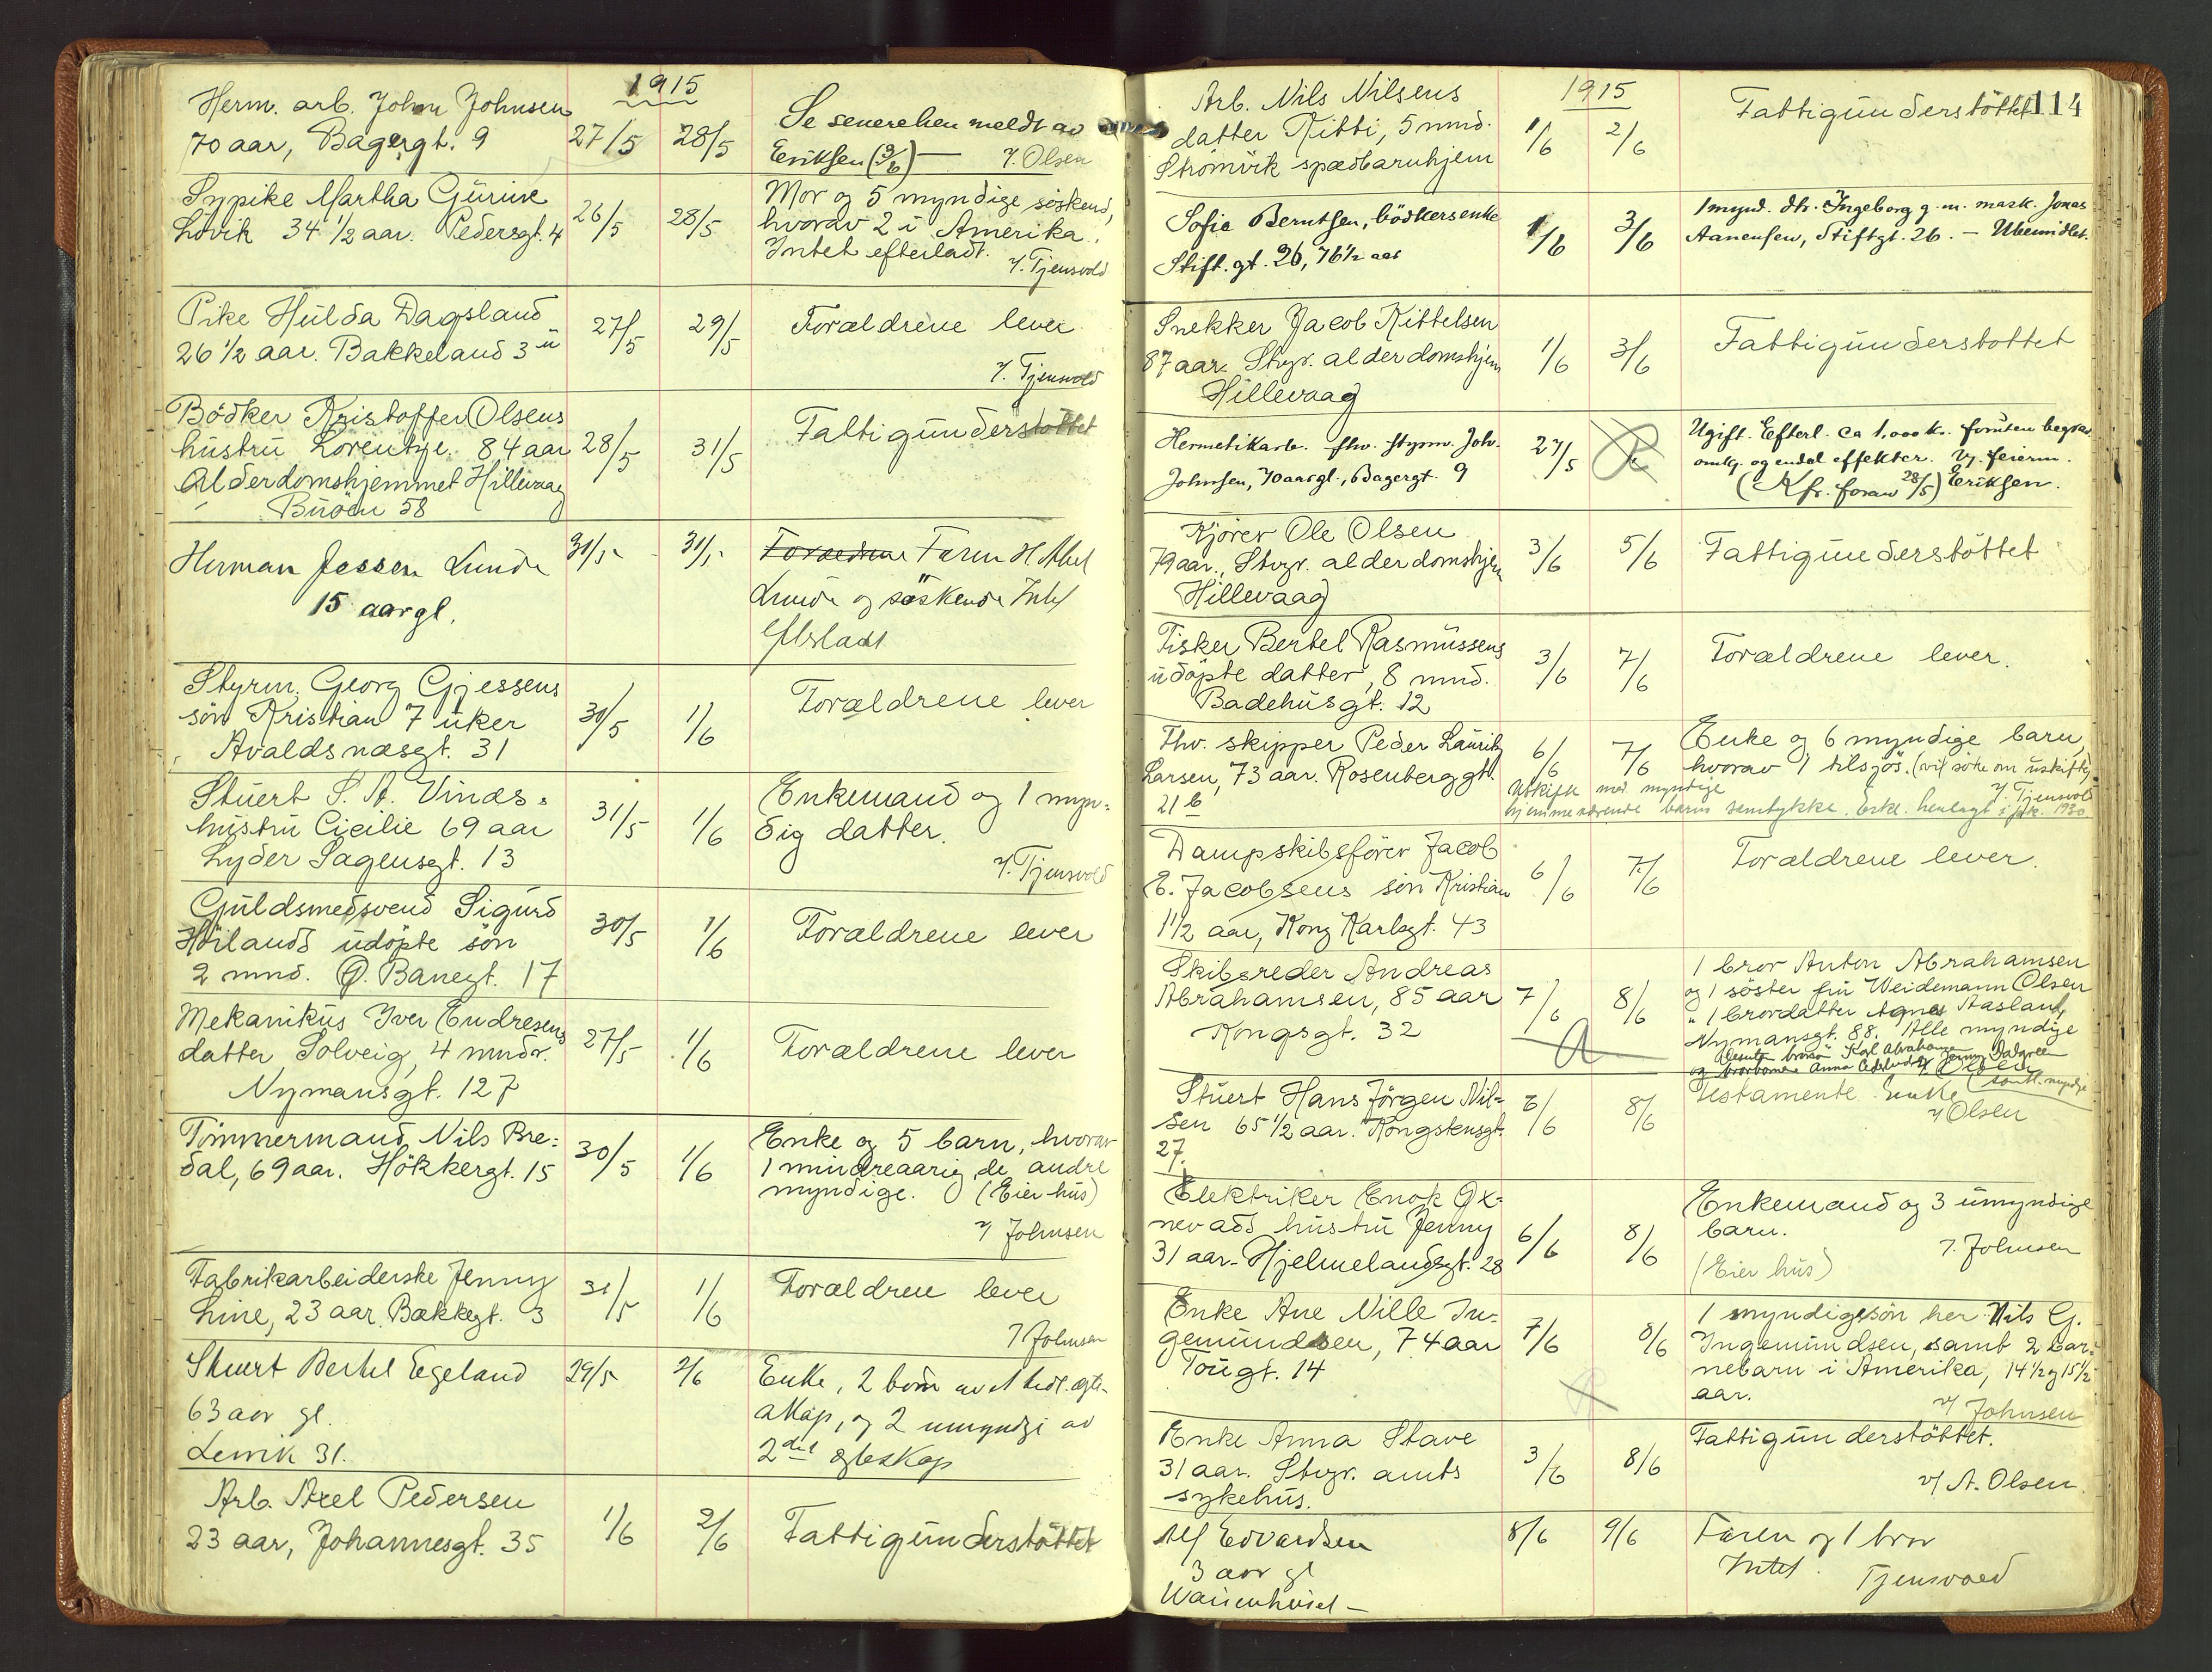 1915
Herm. arb. John Johnsen
70 aar, Bagergt. 9
27/5
28/5
Se senerehen meldt av
Eriksen (3/6) — v/ Olsen
Sypike Martha Gurine
Løvik 34 1/2 aar. Pedersgt. 4
26/5
28/5
Mor og 5 myndige søskend,
hvorav 2 i Amerika.
Intet efterladt.
v/ Tjensvold
Pike Hulda Dagsland
26 1/2 aar. Bakkeland 3
27/5
29/5
Forældrene lever
v/ Tjensvold
Bödker Kristoffer Olsens
hustru Lorentze. 84 aar
Alderdomshjemmet Hillevaag
Buöen 58
28/5
31/5
Fattigunderstöttet
Herman Jessen Lunde
15 aar gl.
31/5
31/5
Faren H. Abel
Lunde og søskende Intet
efterladt
Styrm. Georg Gjessens
sön Kristian 7 uker
Avaldsnæsgt. 31
30/5
1/6
Forældrene lever
Stuert S. A. Vinds=
hustru Cicilie 69 aar
Lyder Sagensgt. 13
31/5
1/6
Enkemand og 1 myn=
dig datter.
v/ Tjensvold
Guldsmedsvend Sigurd
Höilands udöpte sön
2 mnd. Ø. Banegt. 17
30/5
1/6
Forældrene lever
Mekanikus Iver Endresens
datter Solveig, 4 mndr.
Nymansgt. 127
27/5
1/6
Forældrene lever
Tömmermand Nils Bre=
dal, 69 aar. Hökkergt. 15
30/5
1/6
Enke og 5 barn, hvorav
1 mindreaarig, de andre
myndige. (Eier hus)
v/ Johnsen
Fabrikarbeiderske Jenny
Line, 23 aar. Bakkegt. 3
31/5
1/6
Forældrene lever
v/ Johnsen
Stuert Bertel Egeland
63 aar gl.
Lervik 31.
29/5
2/6
Enke, 2 born av 1 hedl. ægte-
skap, og 2 umyndge av
2det ægteskap
Arb. Axel Pedersen
23 aar, Johannesgt. 35
1/6
2/6
Fattigunderstöttet
114
1915
Arb. Nils Nilsens
datter Kitti, 5 mnd.
Strömvik spædbarnhjem
1/6
2/6
Fattigunderstöttet
Sofie Berntsen, bödkersenke
Stift.gt. 26, 76 1/2 aar
1/6
3/6
1 mynd. dtr. Ingeborg g. m. mask. Jonas
Aanensen, Stiftgt. 26. — Ubemidlet.
Snekker Jacob Kittelsen
87 aar. Stvgr. alderdomshjem
Hillevaag
1/6
3/6
Fattigunderstottet
Hermetikarb. fhv. styrm. Joh.
Johnsen, 70 aar gl., Bagergt. 9
27/5
Ugift. Efterl. ca 1,000 kr. foruten begrav.
omk. og endel effekter. v/ feierm.
(Kfr. foran 28/5) Eriksen.
Kjörer Ole Olsen
79 aar., Stvgr. alderdomshjem
Hillevaag
3/6
5/6
Fattigunderstöttet
Fisker Bertel Rasmussens
udöpte datter, 8 mnd.
Badehusgt. 12
3/6
7/6
Forældrene lever.
Fhv. skipper Peder Lauritz
Larsen, 73 aar. Rosenberggt.
21 b
6/6
7/6
Enke og 6 myndige barn,
hvorav 1 tilsjös. (vil söke om uskifte)
v/ Tjensvold
Utskifte med myndige
hjemmeværende barns samtykke. Erkl. henlagt i pk. 1930.
Dampskibsförer Jacob
E. Jacobsens sön Kristian
1 1/2 aar, Kong Karlsgt. 43
6/6
7/6
Forældrene lever.
Skibsreder Andreas
Abrahamsen, 85 aar
Kongsgt. 32
7/6
8/6
1 bror Anton Abrahamsen
og 1 söster fru Weidemann Olsen
" 1 brordatter Agnes Aasland,
Nymansgt. 88. Alle myndige
Stuert Hans Jörgen Nil=
sen 65 1/2 aar. Kongstensgt.
27.
6/6
8/6
Testamente. Enke
v/ Olsen
Elektriker Enok Ox=
nevads hustru Jenny
31 aar. Hjelmelandsgt. 28
6/6
8/6
Enkemand og 3 umyndige
barn.
v. Johnsen
(Eier hus)
Enke Ane Nille In=
gemundsen, 74 aar
Tougt. 14
7/6
8/6
1 myndig sön her Nils G.
Ingemundsen, samt 2 bar=
nebarn i Amerika, 14 1/2 og 15 1/2
aar.
v/ Johnsen
Enke Anna Stave
31 aar. Stvgr. amts
sykehus.
3/6
8/6
Fattigunderstöttet.
v/ A. Olsen.
Alf Edvardsen
3 aar gl
Waisenhuset —
8/6
9/6
Faren og 1 bror
Intet. Tjensvold